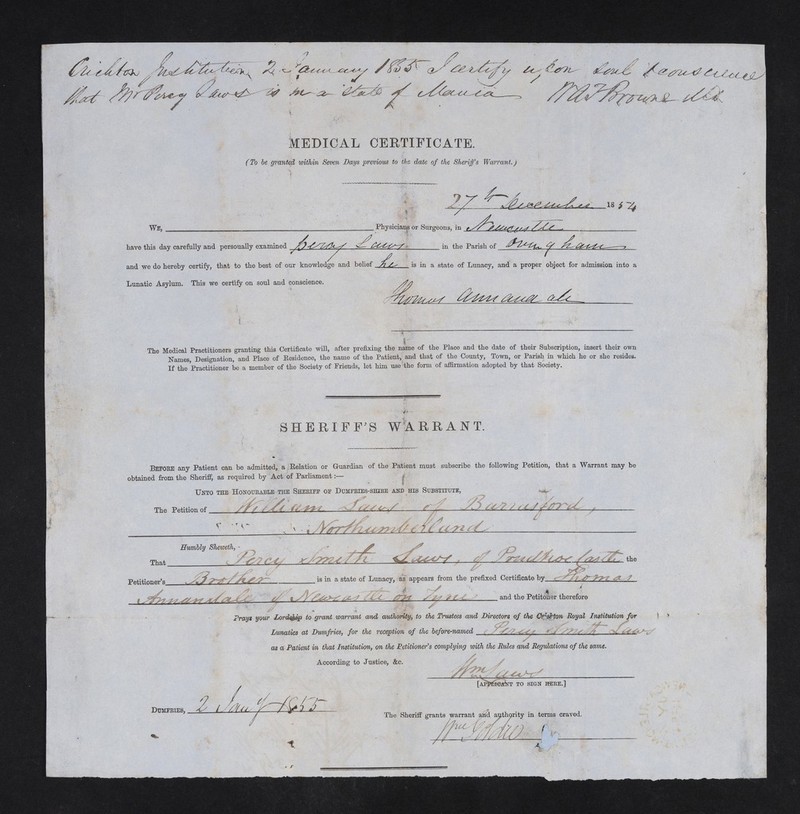 Crichton Institution, 2 January 1855 I certify upon soul & conscience
that Mr Percy Laws is in a state of Mania W A F Browne Md
MEDICAL CERTIFICATE.
(To be granted within Seven Days previous to the date of the Sheriff's Warrant.)
27th December 1854
WE, Physicians or Surgeons, in Newcastle
have this day carefully and personally examined percy Laws in the Parish of Ovingham
and we do hereby certify, that to the best of our knowledge and belief he is in a state of Lunacy, and a proper object for admission into a
Lunatic Asylum. This we certify on soul and conscience.
Thomas Annandale
The Medical Practitioners granting this Certificate will, after prefixing the name of the Place and the date of their Subscription, insert their own
Names, Designation, and Place of Residence, the name of the Patient, and that of the County, Town, or Parish in which he or she resides.
If the Practitioner be a member of the Society of Friends, let him use the form of affirmation adopted by that Society.
SHERIFF'S WARRANT.
BEFORE any Patient can be admitted, a Relation or Guardian of the Patient must subscribe the following Petition, that a Warrant may be
obtained from the Sheriff, as required by Act of Parliament :—
UNTO THE HONOURABLE THE SHERIFF OF DUMFRIES-SHIRE AND HIS SUBSTITUTE,
The Petition of William Laws of Barrasford,
Northumberland
Humbly Sheweth,
That Percy Smith Laws, of Prudhoe Castle the
Petitioner's Brother is in a state of Lunacy, as appears from the prefixed Certificate by Thomas
Annandale of Newcastle on Tyne and the Petitioner therefore
Prays your Lordship to grant warrant and authority, to the Trustees and Directors of the Crichton Royal Institution for
Lunatics at Dumfries, for the reception of the before-named Percy Smith Laws
as a Patient in that Institution, on the Petitioner's complying with the Rules and Regulations of the same.
According to Justice, &c.
Wm Laws
[APPLICANT TO SIGN HERE.]
DUMFRIES, 2 Jany 1855
The Sheriff grants warrant and authority in terms craved.